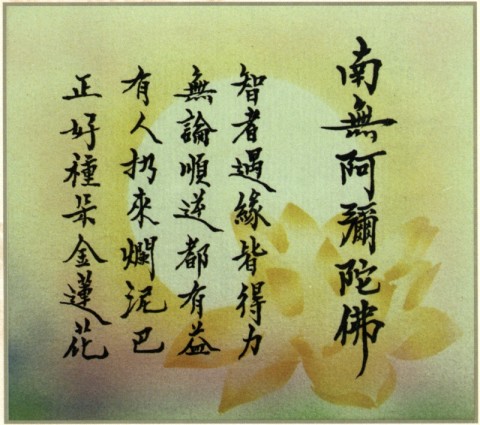 南無阿彌陀佛
智者遇緣皆得力
無論順逆都有益
有人扔來爛泥巴
正好種朵金蓮花